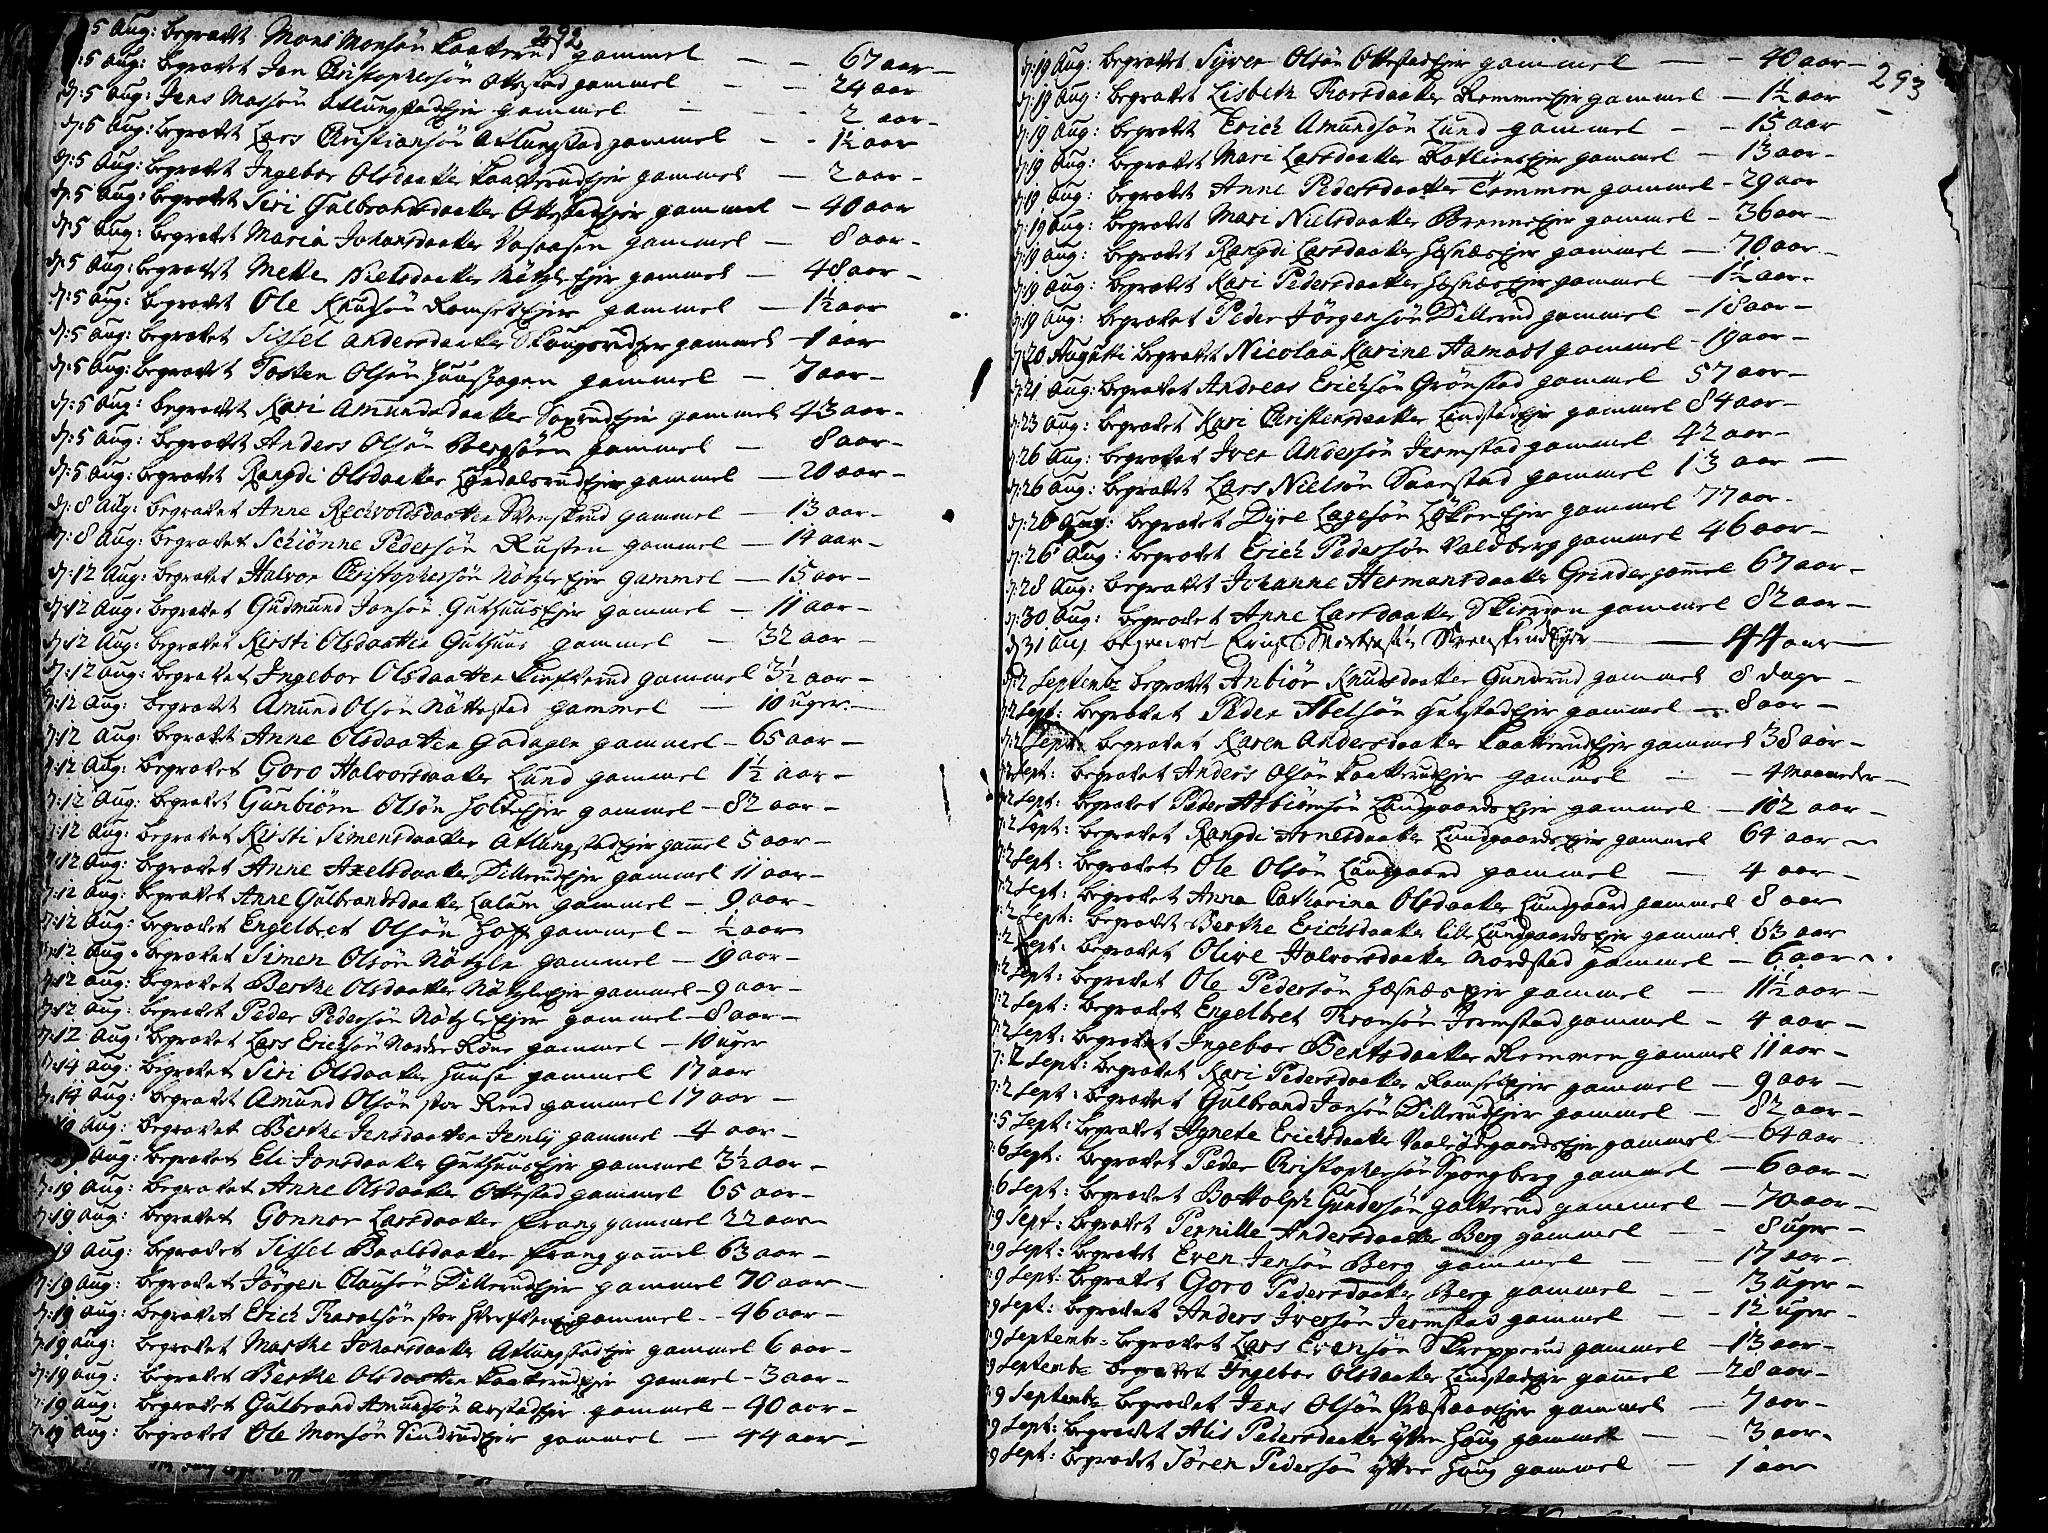 292
5 Aug: begravet Mons Monsøn Kaatterud gammel — 67 aar —
:5 Aug: begravet Jan Christophersøn Ottestad gammel — 24 aar
d:5 Aug: Jens Massøn Atlungstad Ejer gammel — 2 aar —
d:5 Aug: begravet Lars Christiansøn Atlungstad gammel — 1½ aar
d:5 Aug: begravet Ingebor Olsdaatter Kaatterud Ejer gammel — 2 aar —
d:5 Aug: begravet Siri Gulbrandsdaatter Ottestad Ejer gammel — 40 aar
d:5 Aug: begravet Maria Johansdaatter Vasaasen gammel — 8 aar —
d:5 Aug: begravet Mette Nielsdaatter Nøtzle Ejer gammel — 48 aar —
d:5 Aug: begravet Ole Knudsøn Ramset Ejer gammel — 1½ aar
d:5 Aug: begravet Sissel Andersdaatter Skougsrud Ejer gammel — 1 aar
d:5 Aug: begravet Tosten Olsøn Huusshagen gammel — 7 aar —
d:5 Aug: begravet Kari Amundsdaatter Saxrud Ejer gammel 43 aar —
d:5 Aug: begravet Anders Olsøn Bergsøen gammel — 8 aar —
d:5 Aug: begravet Rangdi Olsdaatter Lardalsrud Ejer gammel — 20 aar —
d:8 Aug: begravet Anne Redvoldsdaatter Svenskrud gammel — 13 aar —
d:8 Aug: begravet Schiønne Pedersøn Rusten gammel — 14 aar —
d:12 Aug: begravet Halvor Christophersøn Nøtzle Ejer gammel — 15 aar —
d:12 Aug: begravet Gudmund Jonsøn Guthuus Ejer gammel — 11 aar —
d:12 Aug: begravet Kersti Olsdaatter Guthuus gammel — 32 aar —
d:12 Aug: begravet Ingebor Olsdaatter gammel 3½ aar —
d:12 Aug: begravet Amund Olsøn Nøttestad gammel — 10 uger —
d:12 Aug: begravet Anne Olsdaatter Gadagen gammel — 65 aar —
d:12 Aug: begravet Goro Halvorsdaatter Lund gammel 1½ aar —
d:12 Aug: begravet Gunbiørn Olsøn Holte Ejer gammel — 82 aar —
:12 Aug: begravet Kirsti Simensdaatter Atlungstad Ejer gamel 5 aar —
:12 Aug: begravet Anne Axelsdaatter Dillerud Ejer gammel 11 aar —
:12 Aug: begravet Anne Gulbrandsdaatter Lalum gammel — 9 aar —
:12 Aug: begravet Engelbret Olsøn Hoff gammel — ½ aar
:12 Aug: begravet Simen Olsøn Nøtzle gammel — 19 aar —
:12 Aug: begravet Berthe Olsdaatter Nøtzle Ejer gammel — 9 aar —
:12 Aug: begravet Peder Pedersøn Nøtzle Ejer gammel — 8 aar —
:12 Aug: begravet Lars Ericksøn Nordre Røne gammel — 10 uger
:14 Aug: begravet Siri Olsdaatter Huuse gammel 17 aar
:14 Aug: begravet Amund Olsøn stor Reed gammel 17 aar —
19 Aug: begravet Berthe Jensdaatter Jemly gammel — 4 aar —
19 Aug: begravet Eli Jonsdaatter Guthuus Ejer gammel 3½ aar —
:19 Aug: begravet Anne Olsdaatter Ottestad gammel 65 aar —
:19 Aug: begravet Gonnor Larsdaatter Frang gammel 22 aar —
19 Aug: begravet Sissel Baalsdaatter Frang gamel 63 aar —
:19 Aug: begravet Jørgen Clausøn Dillerud Ejer gammel 70 aar —
:19 Aug: begravet Erich Tharalsøn stor Ejer gammel — 46 aar —
:19 Aug: begravet Marthe Johansdaatter Atlungstad Ejer gammel 6 aar —
:19 Aug: begravet Berthe Olsdaatter Kaatterud Ejer gammel — 3 aar —
:19 Aug: begravet Gulbrand Amundsøn Arstad Ejer gammel — 40 aar —
:19 Aug: begravet Ole Monsøn Sindrud Ejer gammel — 44 aar —
293
d:19 Aug: begravet Syver Olsøn Ottestad Ejer gammel — 40 aar —
d:19 Aug: begravet Lisbeth Thorsdaatter Rommen Ejer gammel — 1½ aar
d:19 Aug: begravet Erich Amundsøn Lund gammel — 15 aar
d:19 Aug: begravet Mari Larsdaatter Ejer gammel — 13 aar —
d:19 Aug: begravet Anne Pedersdaatter Tommen gammel — 29 aar
:19 Aug: begravet Mari Nielsdaatter Brenne Ejer gammel — 36 aar —
:19 Aug: begravet Rangdi Larsdaatter Hesnæs Ejer gammel — 70 aar —
:19 Aug: begravet Kari Pedersdaatter Hesnæs Ejer gammel — 1½ aar —
:19 Aug: begravet Peder Jørgensøn Dillerud gammel — 18 aar —
:20 Augusti begravet Nicolaa Karine Aamodt gammel — 19 aar —
:21 Aug: begravet Andreas Ericksøn Grønstad gammel 57 aar —
:23 Aug: begravet Kari Christensdaatter Lindstad Ejer gammel 84 aar —
:26 Aug: begravet Iver Andersøn Jermstad gammel 42 aar —
:26 Aug: begravet Lars Nielsøn Saarstad gammel 13 aar —
d:26 Aug: begravet Dyre Lagesøn Løken Ejer gammel 77 aar —
d:26 Aug: begravet Erich Pedersøn Valdberg gammel 46 aar —
:28 Aug: begravet Johanne Hermansdaatter Grinder gamel 67 aar —
:30 Aug: begravet Anne Larsdaatter Skierden gammel 82 aar —
d 31 Aug begravet Erich Mortensøn Svenskrud Ejer — 44 aar —
:2 Septembr begravet Anbiør Knudsdaatter Gunderud gammel 8 dage —
:2 Sept: begravet Peder Abelsøn Gulstad Ejer gammel — 8 aar —
:2 Sept: begravet Karen Andersdaatter Kaatterud Ejer gammel 38 aar —
:2 Sept: begravet Anders Olsøn Kaatterud Ejer gammel — 4 Maaneder —
:2 Sept: begravet Peder Asbiørnsøn Lundgaards Ejer gammel — 102 aar —
:2 Sept: begravet Rangdi Arnesdaatter Lundgaards Ejer gammel 64 aar —
:2 Sept: begravet Ole Olsøn Lundgaard gammel — 4 aar —
:2 Sept: begravet Anna Catharina Olsdaatter Lundgaard gammel 8 aar
:2 Sept: begravet Berthe Erichsdaatter lille Lundgaards Ejer gammel 63 aar
:2 Sept: begravet Olive Halvorsdaatter Nordstad gammel — 6 aar —
:2 Sept: begravet Ole Pedersøn Hesnæs Ejer gammel — 11½ aar —
:2 Sept: begravet Engelbret Thronsøn Jermstad gammel — 4 aar —
:2 Sept: begravet Ingebor Bentsdaatter Rommen gammel 11 aar —
:2 Sept: begravet Kari Pedersdaatter Ramset Ejer gammel — 9 aar —
:2 Sept: begravet Gulbrand Jonsøn Dillerud Ejer gammel — 82 aar —
:5 Sept: begravet Agnete Erichsdaatter Vaalsødegaards Ejer gammel — 64 aar
:6 Sept: begravet Peder Christophersøn Spongberg gammel — 6 aar —
:6 Sept: begravet Bottolph Gundersøn Galterud gammel — 70 aar —
:9 Sept: begravet Pernille Andersdaatter Berg gammel — 8 uger —
:9 Sept: begravet Even Jensøn Berg gammel — 17 aar —
:9 Sept: begravet Goro Pedersdaatter Berg gammel — 3 uger —
:9 Sept: begravet Anders Iversøn Jermstad gammel — 12 uger —
:9 Septembr: begravet Lars Evensøn Skrepperud gammel — 13 aar —
:9 Septembr begravet Ingebor Olsdaatter Lindstad Ejer gamel — 28 aar —
:9 Septembr begravet Jens Olsøn Ejer gammel — 7 aar —
:9 Sept: begravet Alis Pedersdaatter Ytre Houg gammel — 3 aar —
:9 Sept: begravet Søren Pedersøn Ytre Houg gammel — 1 aar